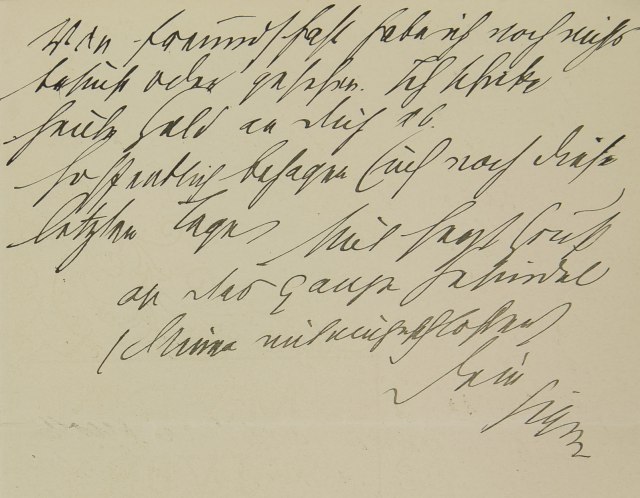 Von Freundschaft habe ich noch nichts
besucht oder gesehen. Ich schicke
heute Geld an dich ab.
Hoffentlich behagen Euch noch diese
letzten Tage. Mit herzl Gruß
an das ganze Gesindel
(Minna miteingeschlossen)
Dein
Sigm